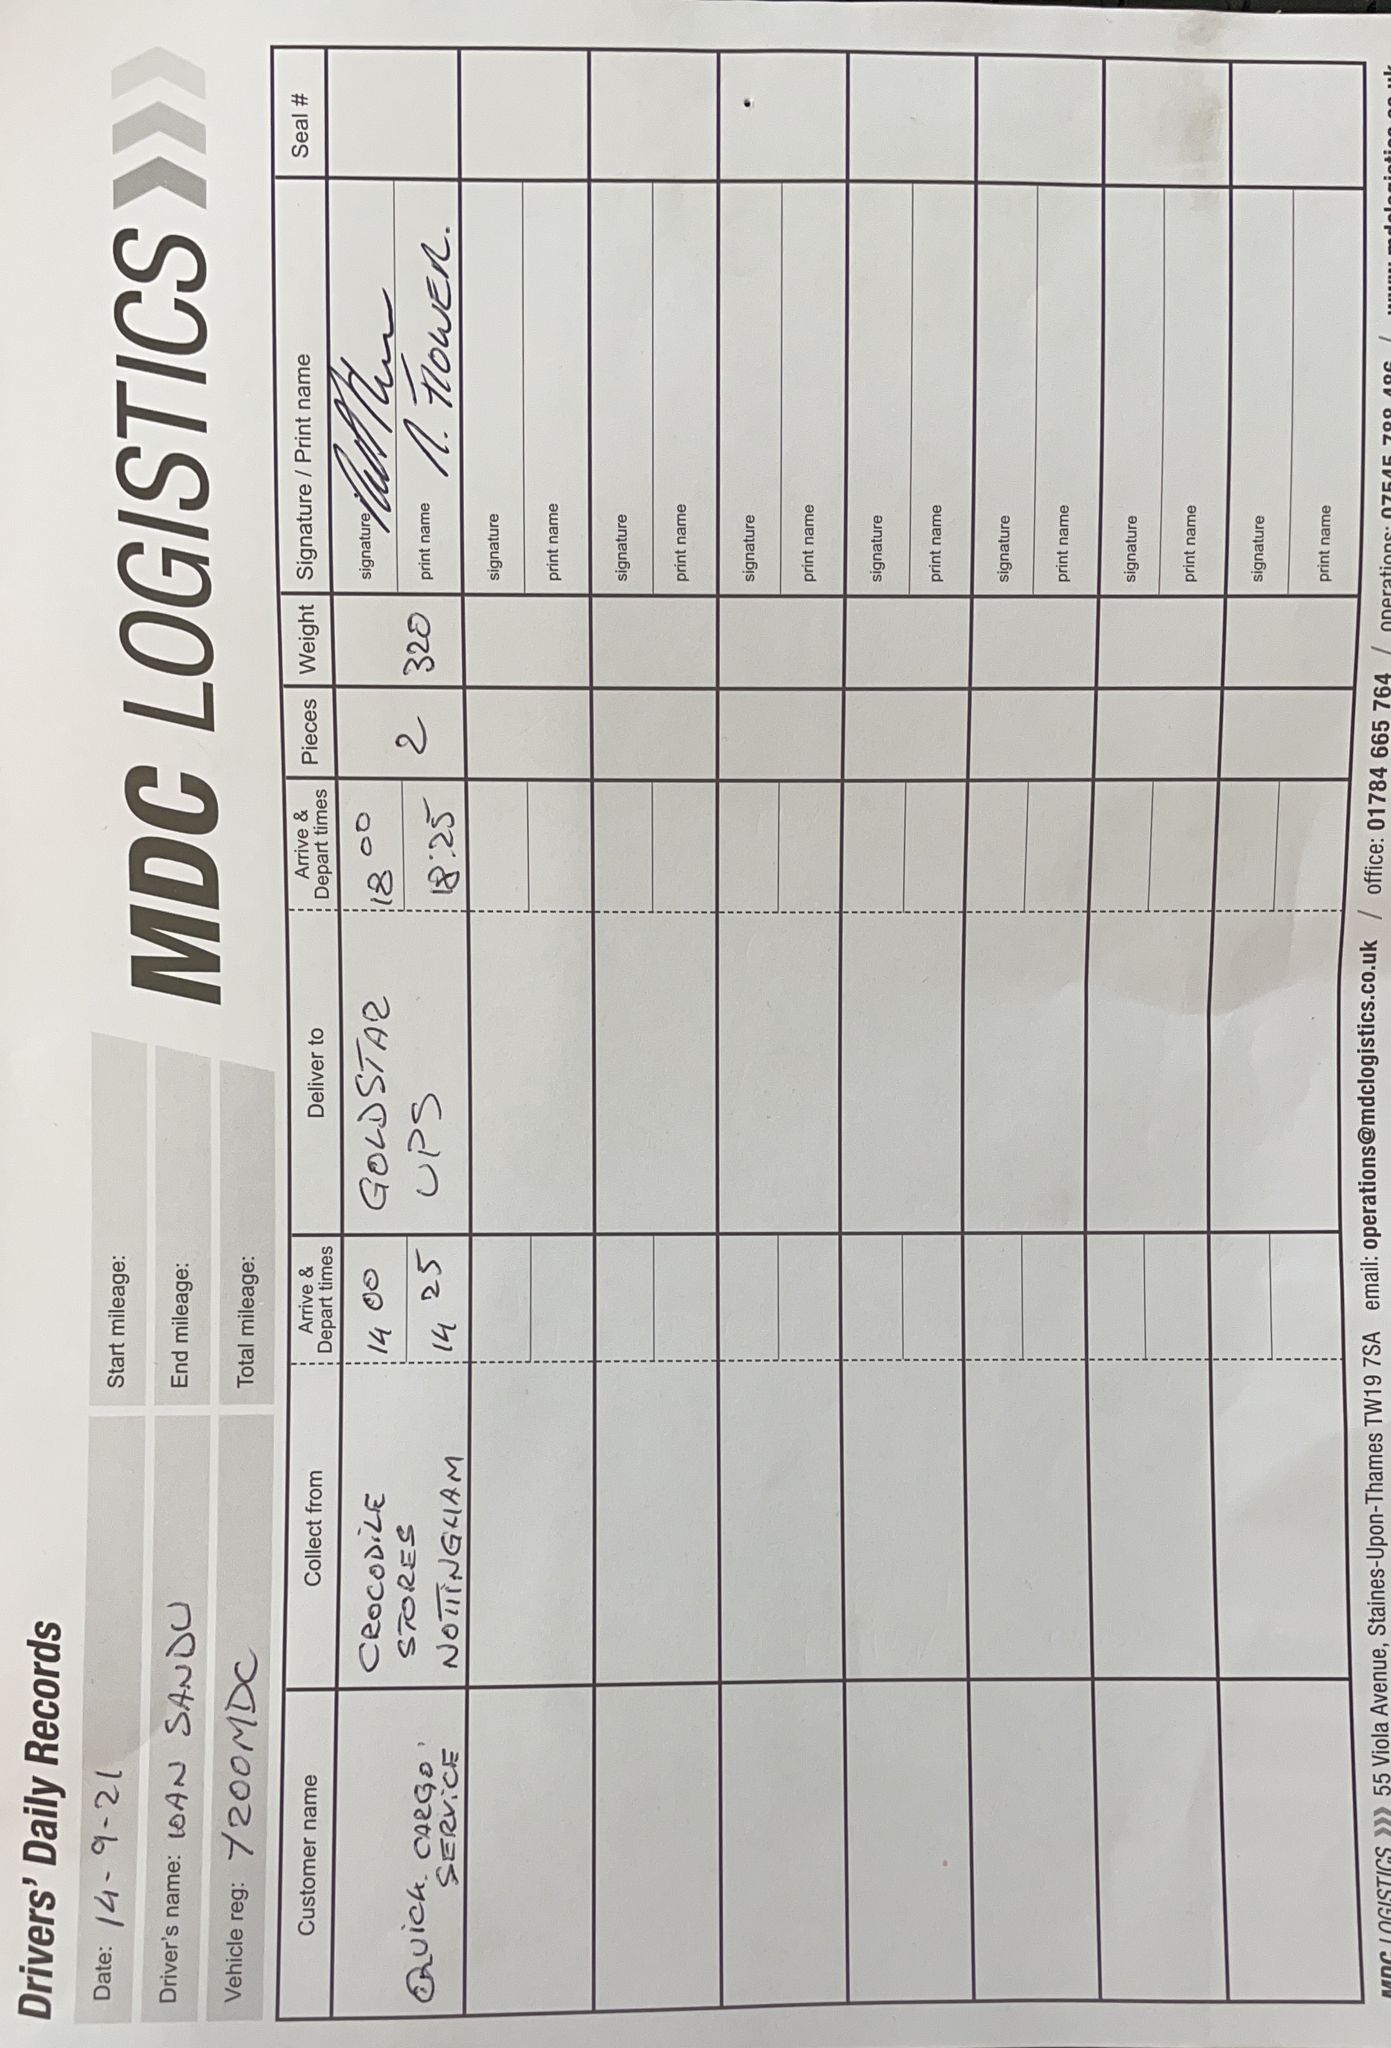 Drivers' Daily Records
MDC LOGISTICS
Date: 14-9-21
Start mileage:
Driver's name: IOAN SANDU
End mileage:
Vehicle reg: Y200MDC
Total mileage:
Customer name Collect from Arrive & Depart times Deliver to Arrive & Depart times Pieces Weight Signature / Print name Seal #
QUICK CARGO SERVICE
CROCODILE
STORES
NOTTINGHAM
14 00
14 25
GOLDSTAR
UPS
18 00
18:25
2
320
signature
print name
signature
print name
signature
print name
signature
print name
signature
print name
signature
print name
signature
print name
signature
print name
MDC LOGISTICS >>> 55 Viola Avenue, Staines-Upon-Thames TW19 7SA email: operations@mdclogistics.co.uk / office: 01784 665 764 / operations: 07545 788 486 /